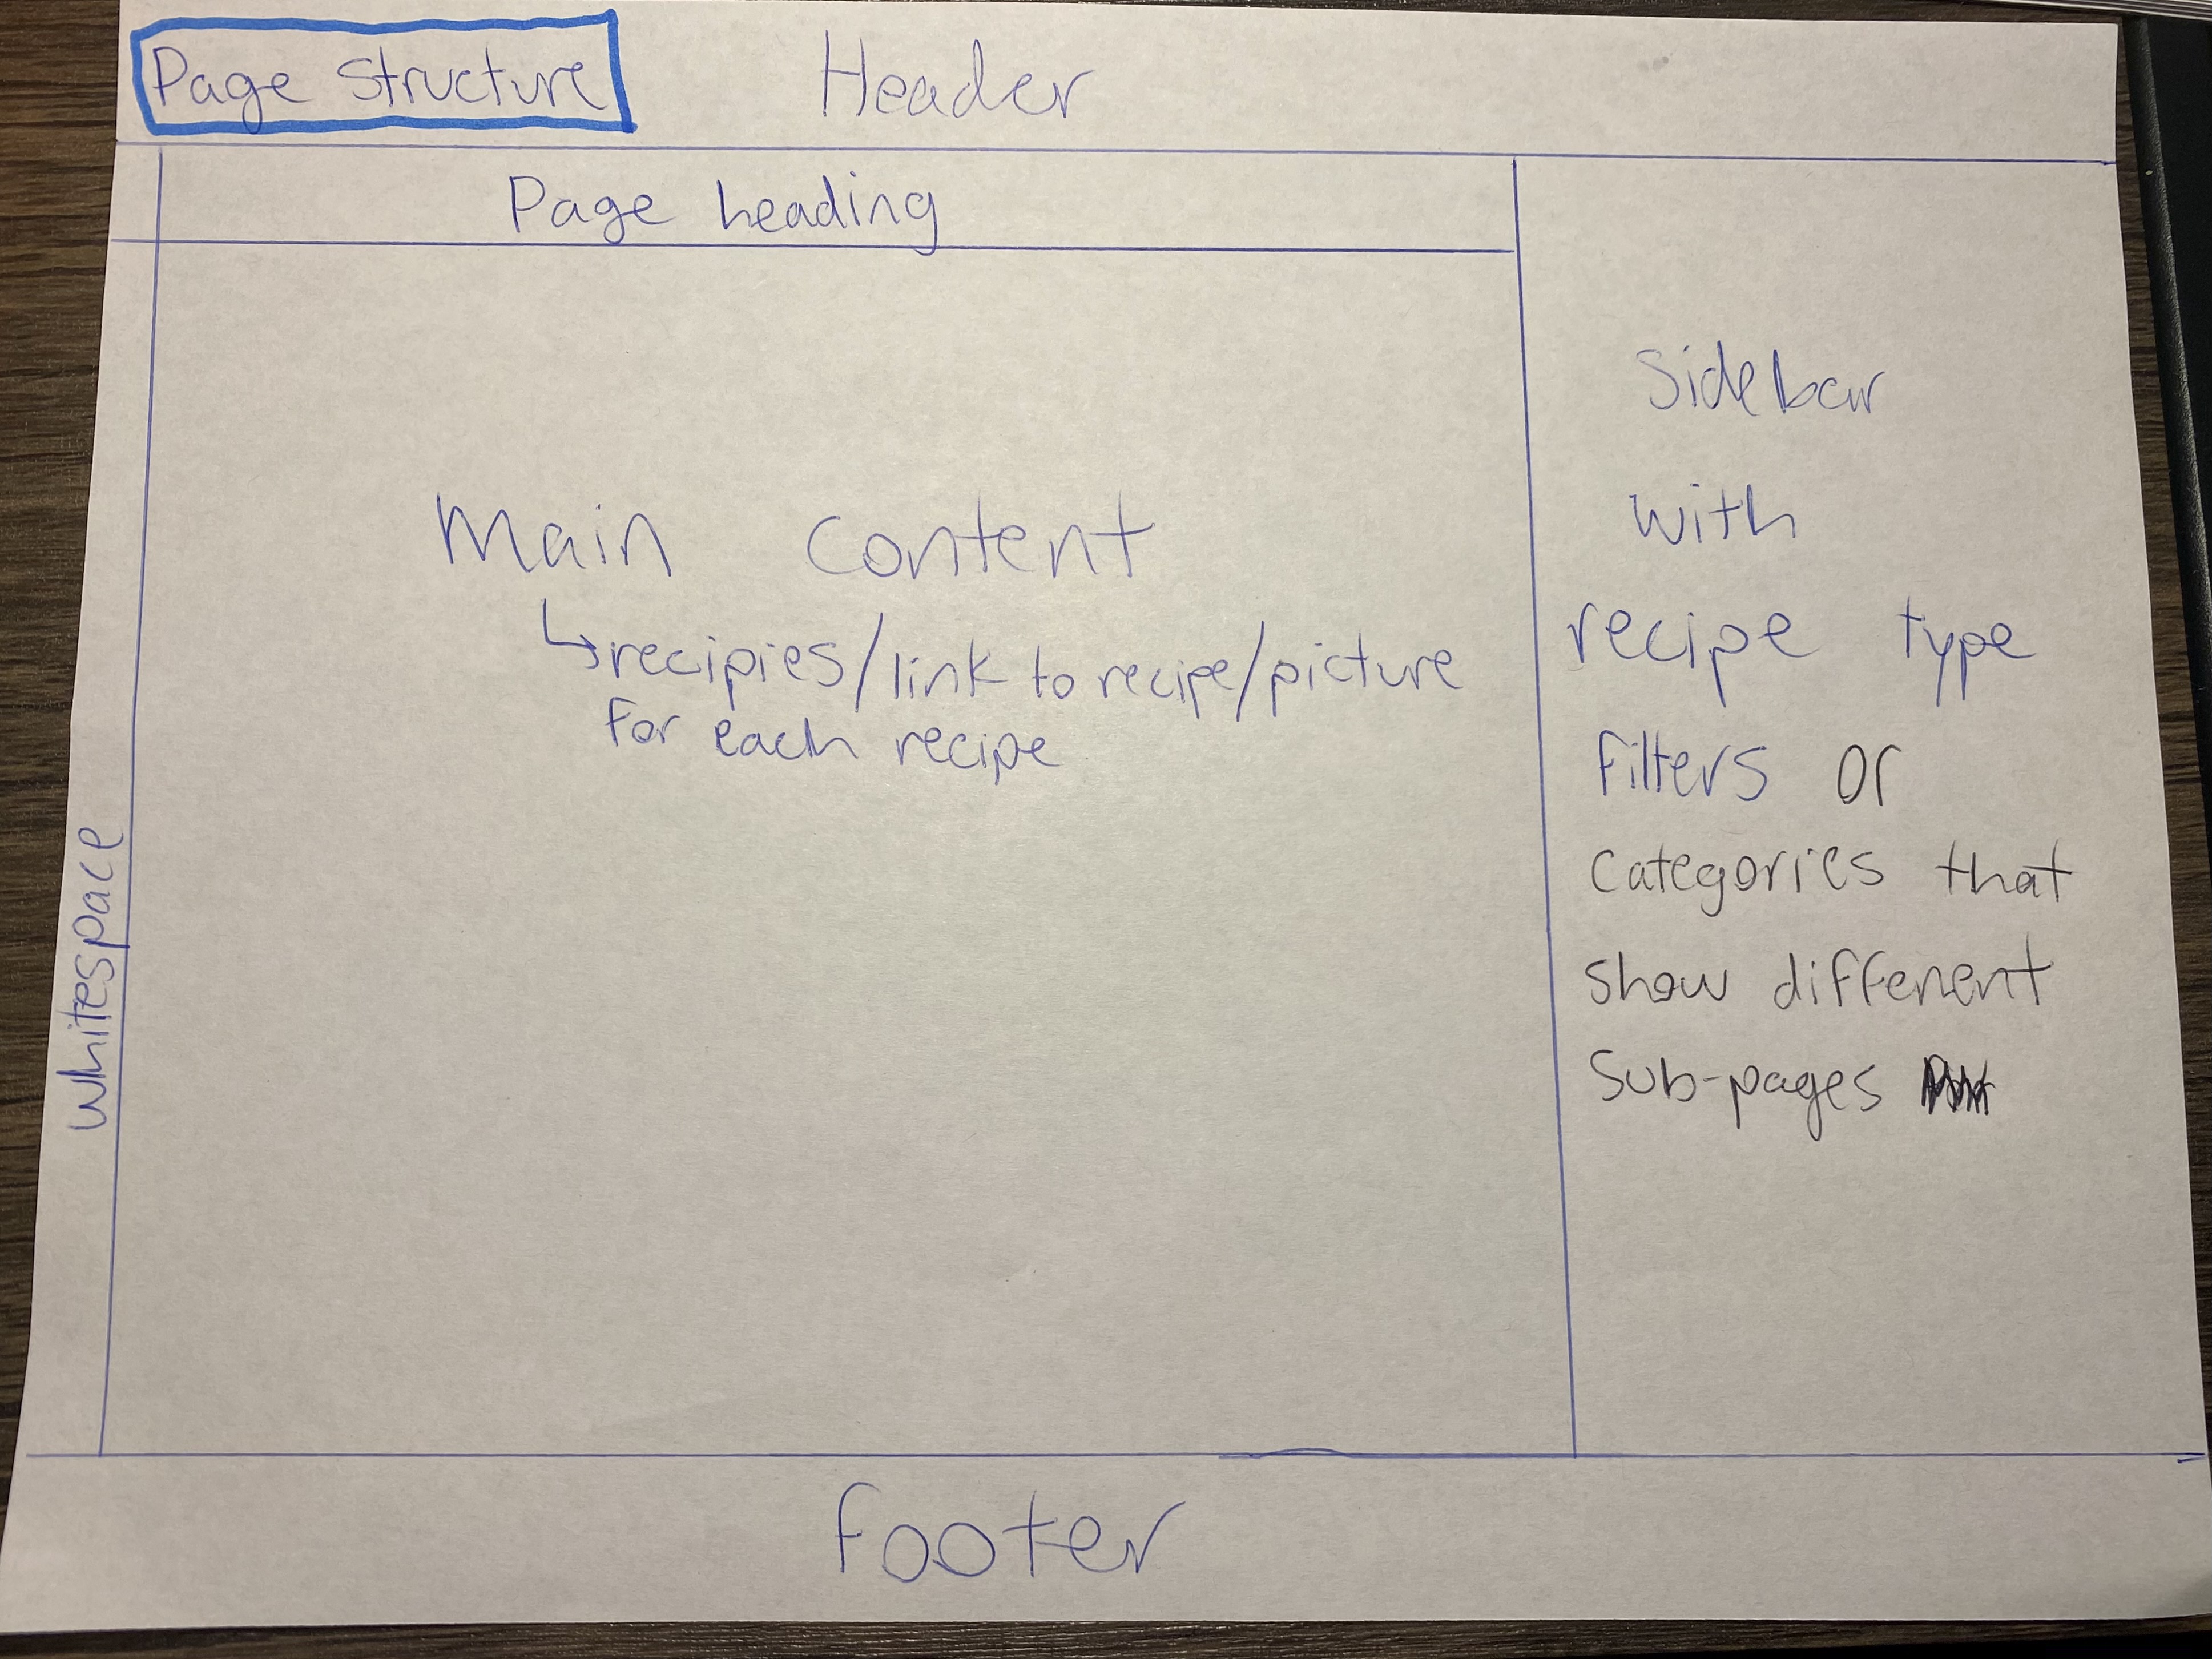 Page Structure
Header
Page heading
Main content
↳recipies/link to recipe/picture
for each recipe
Whitespace
Sidebar
with
recipe type
filters or
categories that
show different
sub-pages
footer